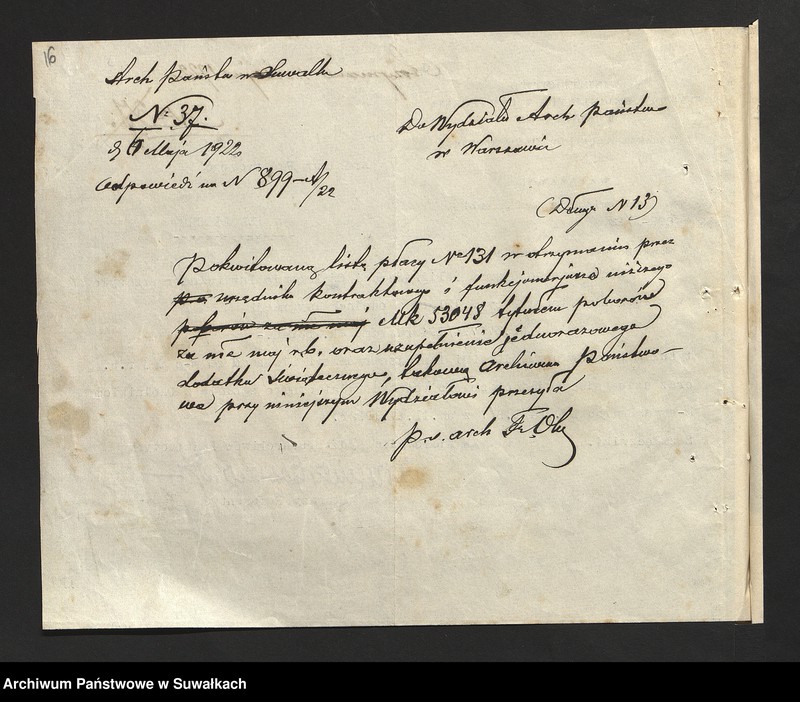 16
Arch Państw w Suwałk
N: 37.
d 6 Maja 1922
odpowiedź na N 899-1/22
Do Wydziału Arch Państw
w Warszawie
(Długa N 13)
Pokwitowaną listę płacy No 131 w otrzymaniu przez
urzędnika kontraktowego i funkcjonarjusza niższego
poborów za mc maj Mk 53048 tytułem poborów
za mc maj r.b. oraz uzupełnienie jednorazowego
dodatku świątecznego, takową Archiwum Państwo-
we przy niniejszym Wydziałowi przesyła
arch
Archiwum Państwowe w Suwałkach